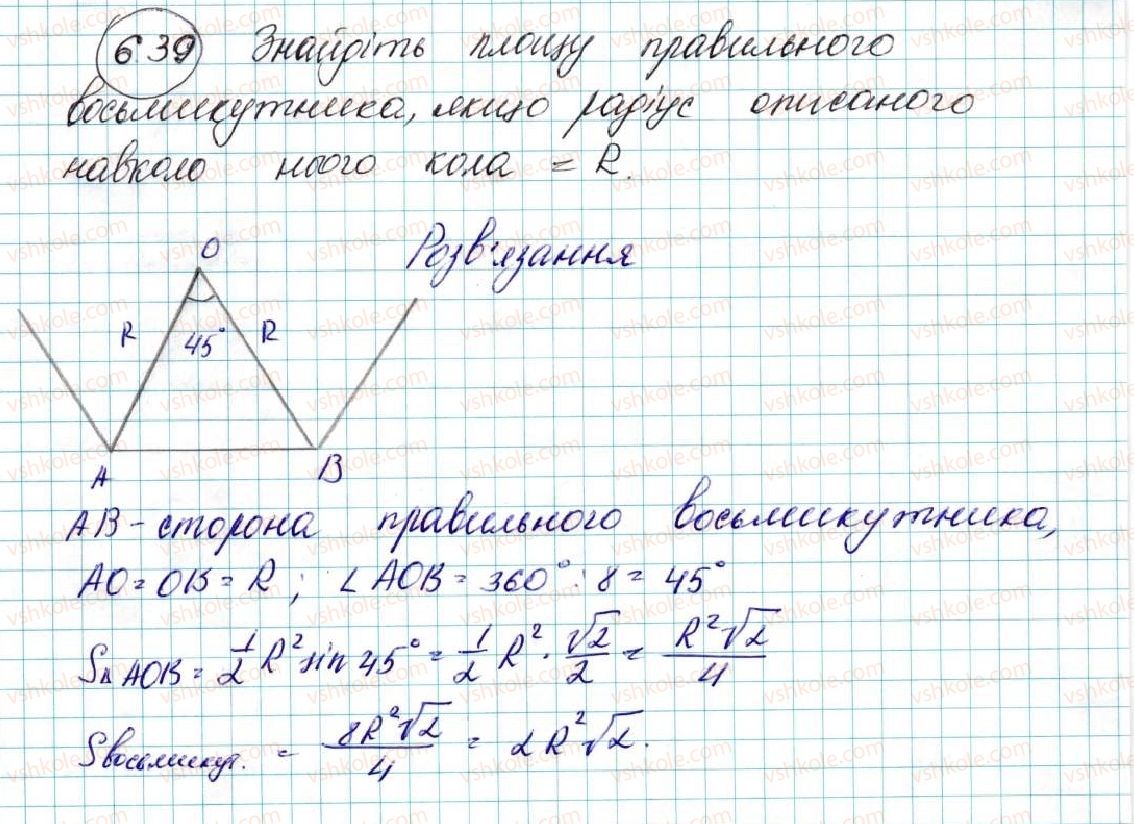 639 Знайдіть площу правильного
восьмикутника, якщо радіус описаного
навколо нього кола = R.
Розв'язання
O
R 45° R
A B
AB - сторона правильного восьмикутника,
AO = OB = R; ∠AOB = 360° : 8 = 45°
S△AOB = 1/2 R² sin 45° = 1/2 R² · √2/2 = R²√2/4
Sвосьмикут. = 8R²√2/4 = 2R²√2.
vshkole.com